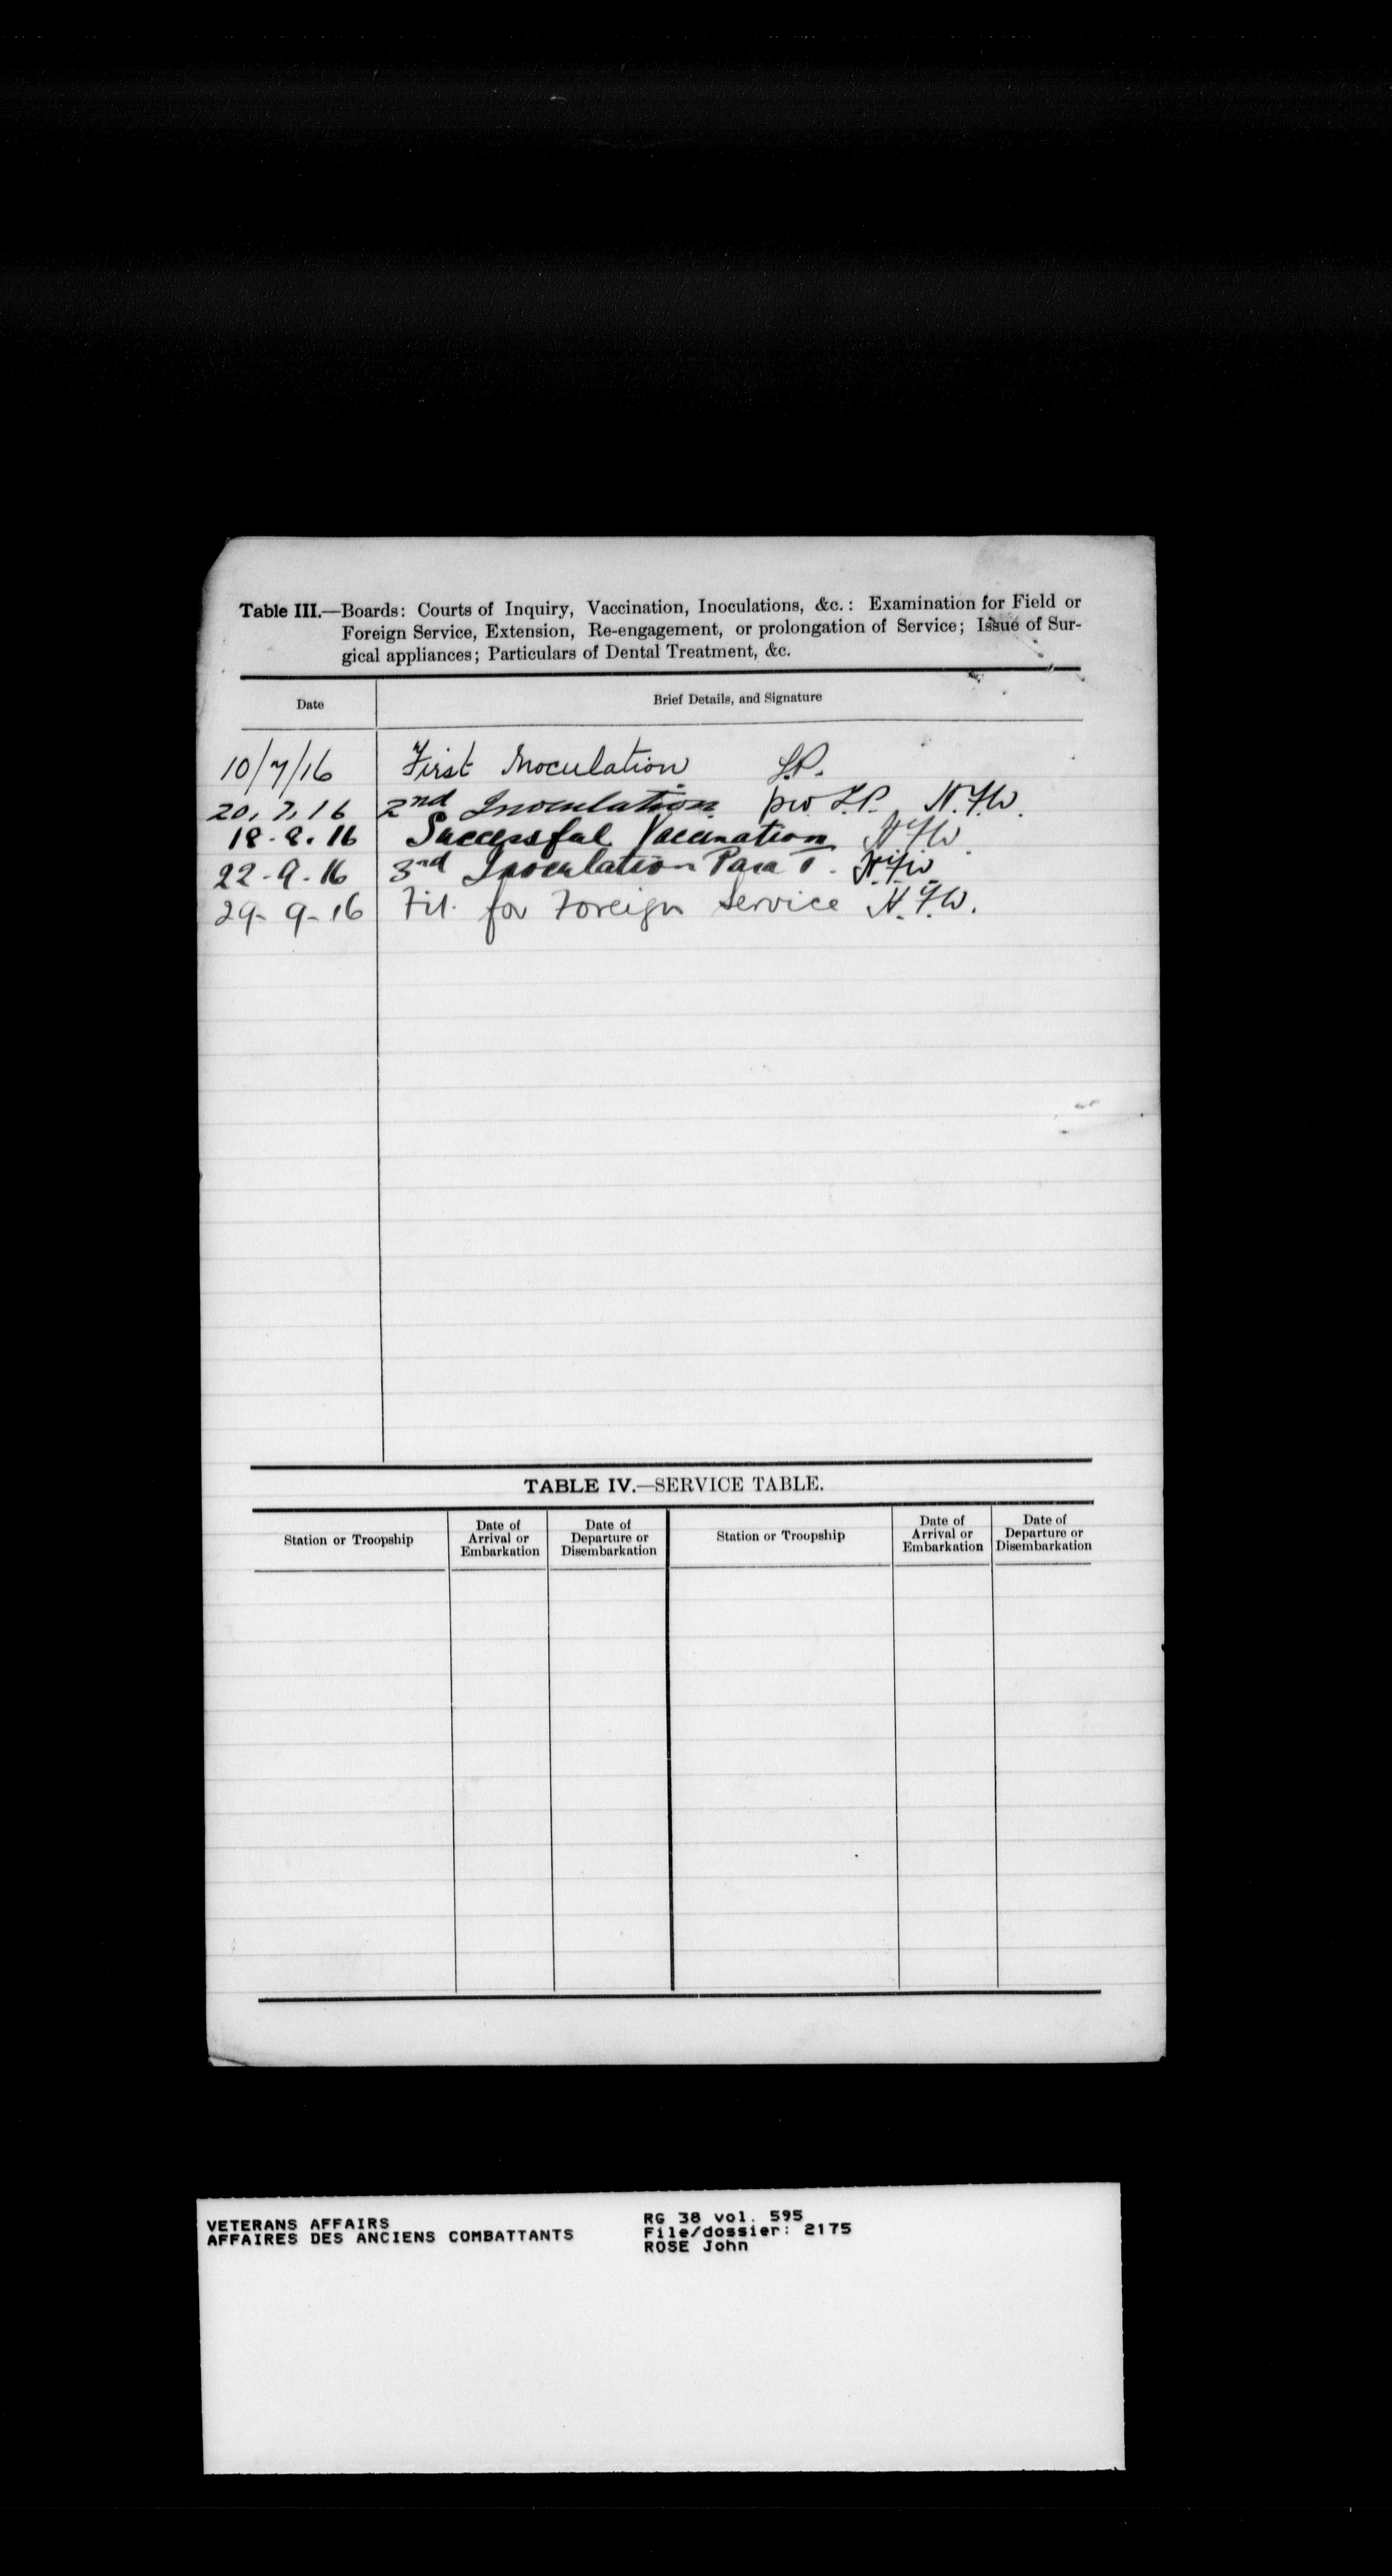 Table III.—Boards: Courts of Inquiry, Vaccination, Inoculations, &c.: Examination for Field or
Foreign Service, Extension, Re-engagement, or prolongation of Service; Issue of Sur-
gical appliances; Particulars of Dental Treatment, &c.
Date Brief Details, and Signature
10/7/16 First Inoculation
20.7.16 2nd Inoculation N.F.W.
18.8.16 Successful Vaccination N.F.W.
22-9-16 3rd Inoculation Para T. N.F.W.
29-9-16 Fit for Foreign Service N.F.W.
TABLE IV.—SERVICE TABLE.
Station or Troopship Date of Arrival or Embarkation Date of Departure or Disembarkation Station or Troopship Date of Arrival or Embarkation Date of Departure or Disembarkation
VETERANS AFFAIRS
AFFAIRES DES ANCIENS COMBATTANTS
RG 38 vol. 595
File/dossier: 2175
ROSE John